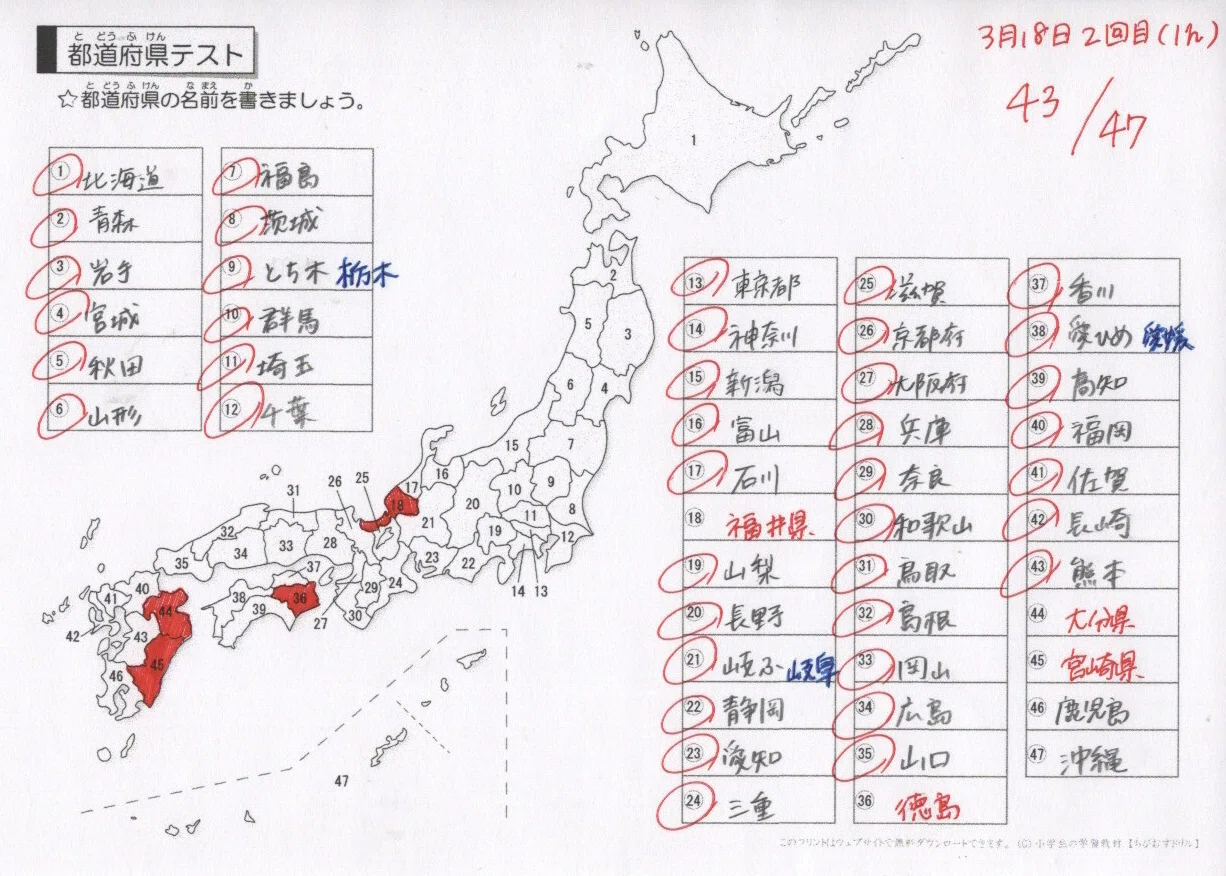 と どう ふ けん
都道府県テスト
と どう ふ けん な まえ か
☆都道府県の名前を書きましょう。
3月18日2回目(1h)
43/47
① 北海道
② 青森
③ 岩手
④ 宮城
⑤ 秋田
⑥ 山形
⑦ 福島
⑧ 茨城
⑨ とち木 栃木
⑩ 群馬
⑪ 埼玉
⑫ 千葉
⑬ 東京都
⑭ 神奈川
⑮ 新潟
⑯ 富山
⑰ 石川
⑱ 福井県
⑲ 山梨
⑳ 長野
㉑ 岐ふ 岐阜
㉒ 静岡
㉓ 愛知
㉔ 三重
㉕ 滋賀
㉖ 京都府
㉗ 大阪府
㉘ 兵庫
㉙ 奈良
㉚ 和歌山
㉛ 鳥取
㉜ 島根
㉝ 岡山
㉞ 広島
㉟ 山口
㊱ 徳島
㊲ 香川
㊳ 愛ひめ 愛媛
㊴ 高知
㊵ 福岡
㊶ 佐賀
㊷ 長崎
㊸ 熊本
㊹ 大分県
㊺ 宮崎県
㊻ 鹿児島
㊼ 沖縄
1
2
5
3
6
4
15
7
16
10
9
17
18
20
11
8
25
26
31
21
19
12
32
33
28
34
35
23
22
14
13
37
29
24
40
41
38
36
39
30
27
44
42
43
45
46
47
このプリントはウェブサイトで無料ダウンロードできます。(C)小学生の学習教材【ちびむすドリル】